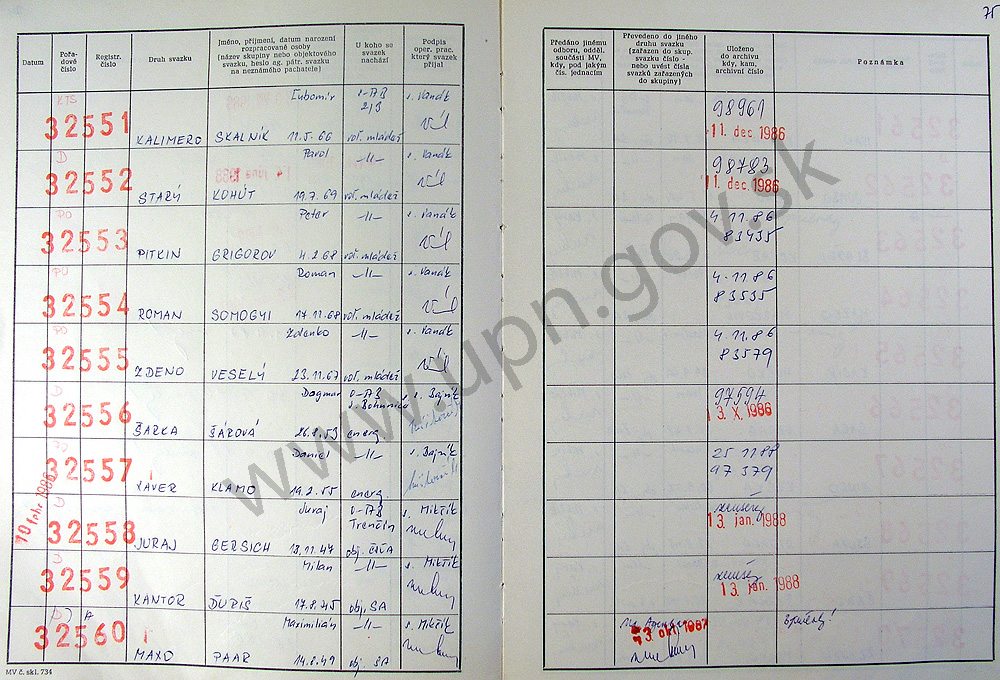 75
Datum
Pořa-
dové
číslo
Registr.
číslo
Druh svazku
Jméno, příjmení, datum narození
rozpracované osoby
(název skupiny nebo objektového
svazku, heslo ag. pátr. svazku
na neznámého pachatele)
U koho se
svazek
nachází
Podpis
oper. prac.
který svazek
přijal
Předáno jinému
odboru, odděl.
součásti MV,
kdy, pod jakým
čís. jednacím
Převedeno do jiného
druhu svazku
(zařazen do skup.
svazku číslo -
nebo uvést čísla
svazků zařazených
do skupiny)
Uloženo
do archivu
kdy, kam,
archivní číslo
Poznámka
KTS
32551
KALIMERO
Ľubomír
SKALNÍK 11.5.66
vol. mládež
s. Vanák
98961
11. dec 1986
D
32552
STARÝ
Pavol
KOHÚT 19.7.69
-11-
vol. mládež
s. Vanák
98783
11. dec. 1986
PO
32553
PITKIN
Peter
GRIGOROV 4.2.68
-11-
vol. mládež
s. Vanák
4.11.86
83435
PO
32554
ROMAN
Roman
SOMOGYI 17.11.68
-11-
vol. mládež
s. Vanák
4.11.86
83535
PO
32555
ZDENO
Zdenko
VESELÝ 23.11.67
-11-
vol. mládež
s. Vanák
4.11.86
83579
D
32556
ŠARKA
Dagmar
ŠÁROVÁ 26.8.53
J. Bohunice
energ
s. Bajník
97594
13. X. 1986
32557
XAVER
Daniel
KLAMO 19.2.55
-11-
energ.
s. Bajník
25 11 88
97379
10 febr. 1986
D
32558
JURAJ
Juraj
GERSICH 18.11.47
Trenčín
obj. ČSĽA
s. Mikřík
13. jan. 1988
D
32559
KANTOR
Milan
ĎURIŠ 17.8.45
-11-
obj. SA
s. Mikřík
13. jan. 1988
D A
32560
MAXO
Maximilián
PAAR 14.8.49
-11-
obj. SA
s. Mikřík
3. okt. 1987
MV č. skl. 734
www.upn.gov.sk